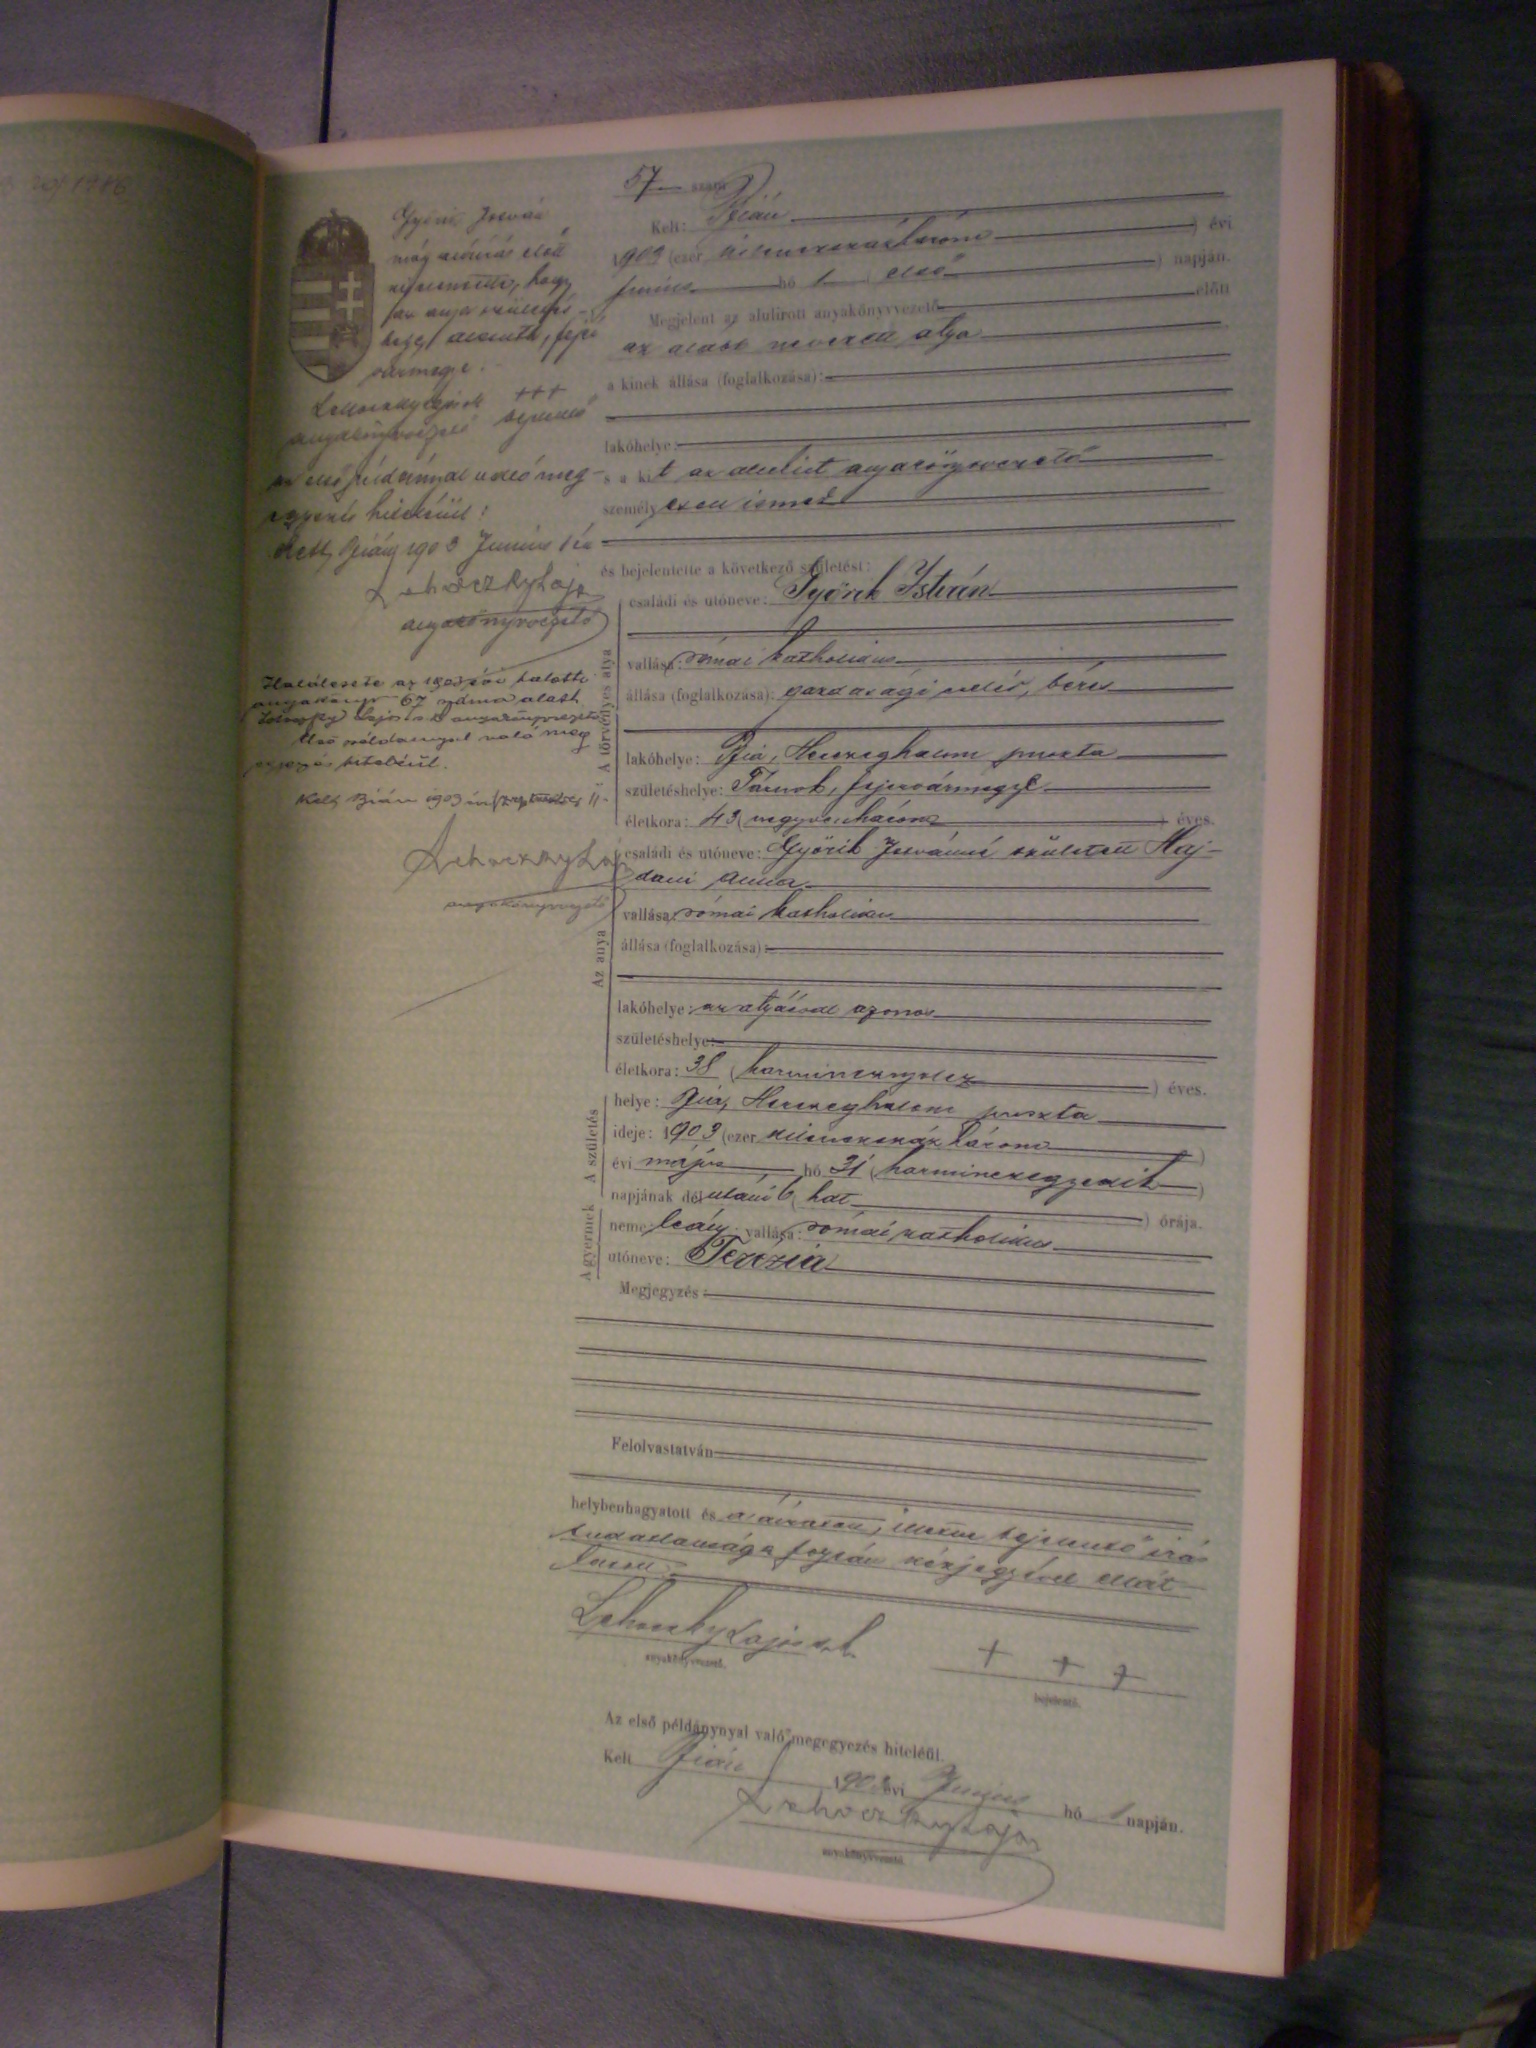 57 szám
Kelt: Bián
1903 (ezer kilenczszázhárom) évi
junius hó 1 (első) napján.
Megjelent az alulirott anyakönyvvezető előtt
az alább nevezett atya
a kinek állása (foglalkozása):
lakóhelye:
s a kit az alulirt anyakönyvvezető
személyesen ismer
és bejelentette a következő születést:
A törvényes atya
családi és utóneve: Győrik István
vallása: római katholikus
állása (foglalkozása): gazdasági cseléd, béres
lakóhelye: Bia, Herczeghalom puszta
születéshelye: Tárnok, fejérvármegye
életkora: 43 (negyvenhárom) éves.
Az anya
családi és utóneve: Győrik Istvánné született Haj-
dani Anna
vallása: római katholikus
állása (foglalkozása):
lakóhelye: az atyáéval azonos
születéshelye:
életkora: 38 (harmincznyolcz) éves.
A születés
helye: Bia, Herczeghalom puszta
ideje: 1903 (ezer kilenczszázhárom)
évi május hó 31 (harminczegyedik)
napjának délutáni 6 (hat) órája.
A gyermek
neme: leány vallása: római katholikus
utóneve: Terézia
Megjegyzés:
Felolvastatván
helybenhagyatott és aláíratott, illetve bejelentő írás
tudatlansága folytán kézjegyével ellát-
tatott.
Lehoczky Lajos s.k.
anyakönyvvezető.
+ + +
bejelentő.
Az első példánynyal való megegyezés hiteléül.
Kelt Bián 1903 évi Junius hó 1 napján.
Lehoczky Lajos
anyakönyvvezető.
István
még aláírás előtt
kijelentette, hogy
az anya születés-
helye fejér
vármegye.
Lehoczky Lajos s.k. +++
anyakönyvvezető bejelentő
az első példánnyal való meg-
egyezés hiteléül:
Kelt, Bián, 1903 Junius 1én
Lehoczky Lajos
anyakönyvvezető
Halálesete az 1903 évi halotti
anyakönyv 67 száma alatt
Lehoczky Lajos s.k. anyakönyvvezető
Első példánnyal való meg
egyezés hiteléül.
Kelt, Bián 1903 évi szeptember 11-
Lehoczky Laj
anyakönyvvezető